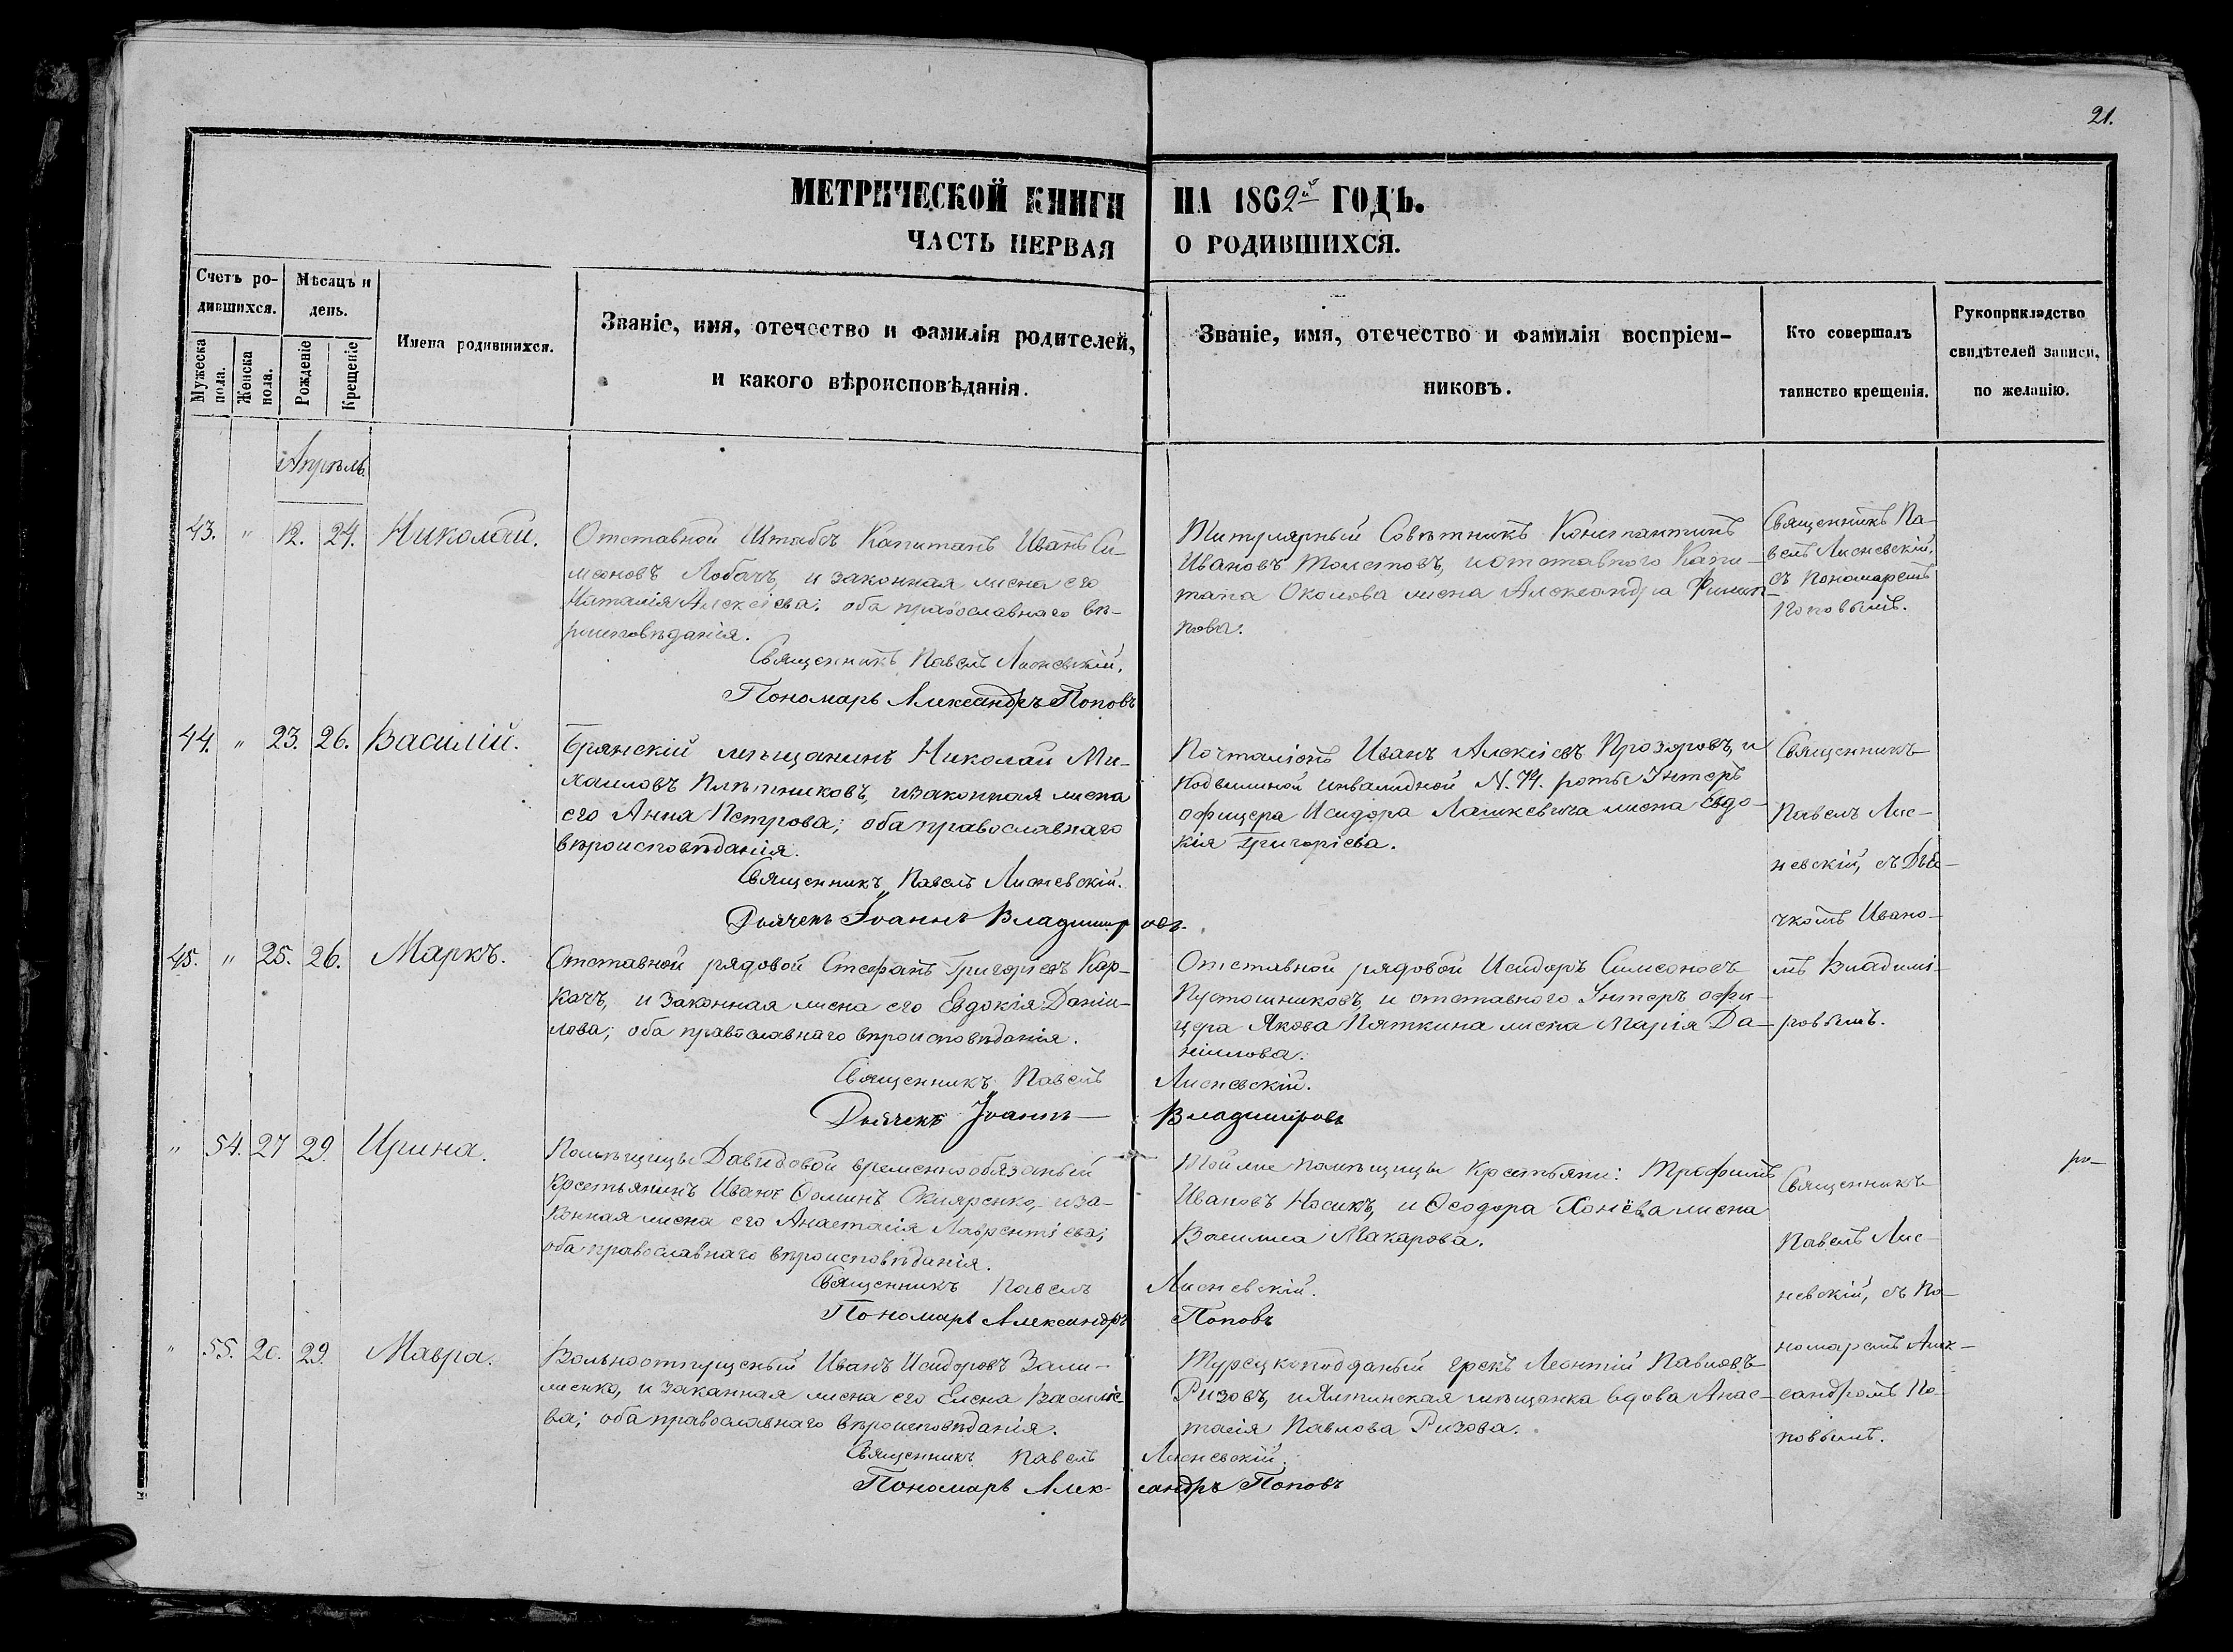 21.
МЕТРИЧЕСКОЙ КНИГИ НА 1862й ГОДЪ.
ЧАСТЬ ПЕРВАЯ О РОДИВШИХСЯ.
Счетъ ро-
дившихся.
Мужеска пола.
Женска пола.
Мѣсяцъ и
день.
Рожденіе
Крещеніе
Имена родившихся.
Званіе, имя, отечество и фамилія родителей,
и какого вѣроисповѣданія.
Званіе, имя, отечество и фамилія воспріем-
никовъ.
Кто совершалъ
таинство крещенія.
Рукоприкладство
свидѣтелей записи,
по желанію.
Апрѣль
43. " 12. 24. Николай.
Отставной Штабсъ Капитанъ Иванъ Си-
меоновъ Лобачъ, и законная жена его
Наталія Алексіева; оба православнаго вѣ-
роисповѣданія.
Священникъ Павелъ Лисневскій.
Пономарь Александръ Поповъ
Титулярный Совѣтникъ Константинъ
Ивановъ Толстовъ, и отставного Капи-
тана Околова жена Александра Филип-
пова.
Священникъ Па-
велъ Лисневскій,
съ Пономаремъ
Поповымъ.
44. " 23. 26. Василій.
Брянскій мѣщанинъ Николай Ми-
хаиловъ Плѣтниковъ, и законная жена
его Анна Петрова; оба православнаго
вѣроисповѣданія.
Священникъ Павелъ Лисневскій.
Дьячекъ Іоаннъ Владимировъ.
Почталіонъ Иванъ Алексіевъ Прозоровъ, и
Подвижной инвалидной N. 74. роты Унтеръ
офицера Исидора Лашкевича жена Евдо-
кія Григоріева.
Священникъ
Павелъ Лис-
невскій, съ Дья-
чкомъ Ивано-
мъ Владимі-
ровымъ.
45. " 25. 26. Маркъ.
Отставной рядовой Стефанъ Григоріевъ Кар-
качъ, и законная жена его Евдокія Даніи-
лова; оба православнаго вѣроисповѣданія.
Священникъ Павелъ Лисневскій.
Дьячекъ Іоаннъ Владиміровъ
Отставной рядовой Исидоръ Симеоновъ
Пустошниковъ, и отставного Унтеръ офи-
цера Якова Пяткина жена Марія Да-
ніилова.
" 54. 27 29. Ирина.
Помѣщицы Давидовой временнообязаный
Крестьянинъ Иванъ Ѳоминъ Скляренко, и за-
конная жена его Анастасія Лаврентіева;
оба православнаго вѣроисповѣданія.
Священникъ Павелъ Лисневскій.
Пономарь Александръ Поповъ
Той же помѣщицы Крестьяни: Трофимъ
Ивановъ Носикъ, и Ѳеодора жена
Василиса Макарова.
Священникъ
Павелъ Лис-
невскій, съ По-
номаремъ Алек-
сандромъ По-
повымъ.
" 55. 20. 29. Мавра.
Вольноотпущеный Иванъ Исидоровъ Зали-
женко, и законная жена его Елена Василіе-
ва; оба православнаго вѣроисповѣданія.
Священникъ Павелъ Лисневскій.
Пономарь Александръ Поповъ
Турецкоподданый грекъ Леонтій Павловъ
Ризовъ, и Ялтинская мѣщанка вдова Анас-
тасія Павлова Ризова.